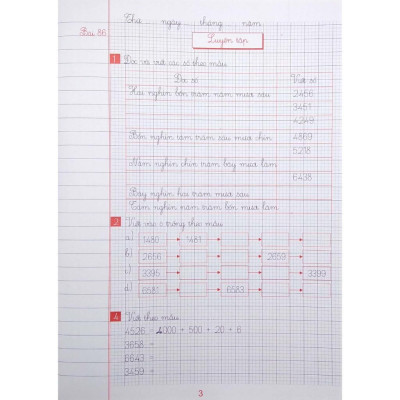 Thứ ngày tháng năm
Bài 86
Luyện tập
1 Đọc và viết các số theo mẫu
Đọc số Viết số
Hai nghìn bốn trăm năm mươi sáu 2456
3451
4249
Bốn nghìn tám trăm sáu mươi chín 4869
5218
Năm nghìn chín trăm bảy mươi lăm
6438
Bảy nghìn hai trăm mươi sáu
Tám nghìn năm trăm bốn mươi lăm
2 Viết vào ô trống theo mẫu
a) 1480 1481
b) 2656 2659
c) 3395 3399
d) 6581 6583
4 Viết theo mẫu
4526 = 4000 + 500 + 20 + 6
3658 =
6643 =
3459 =
3